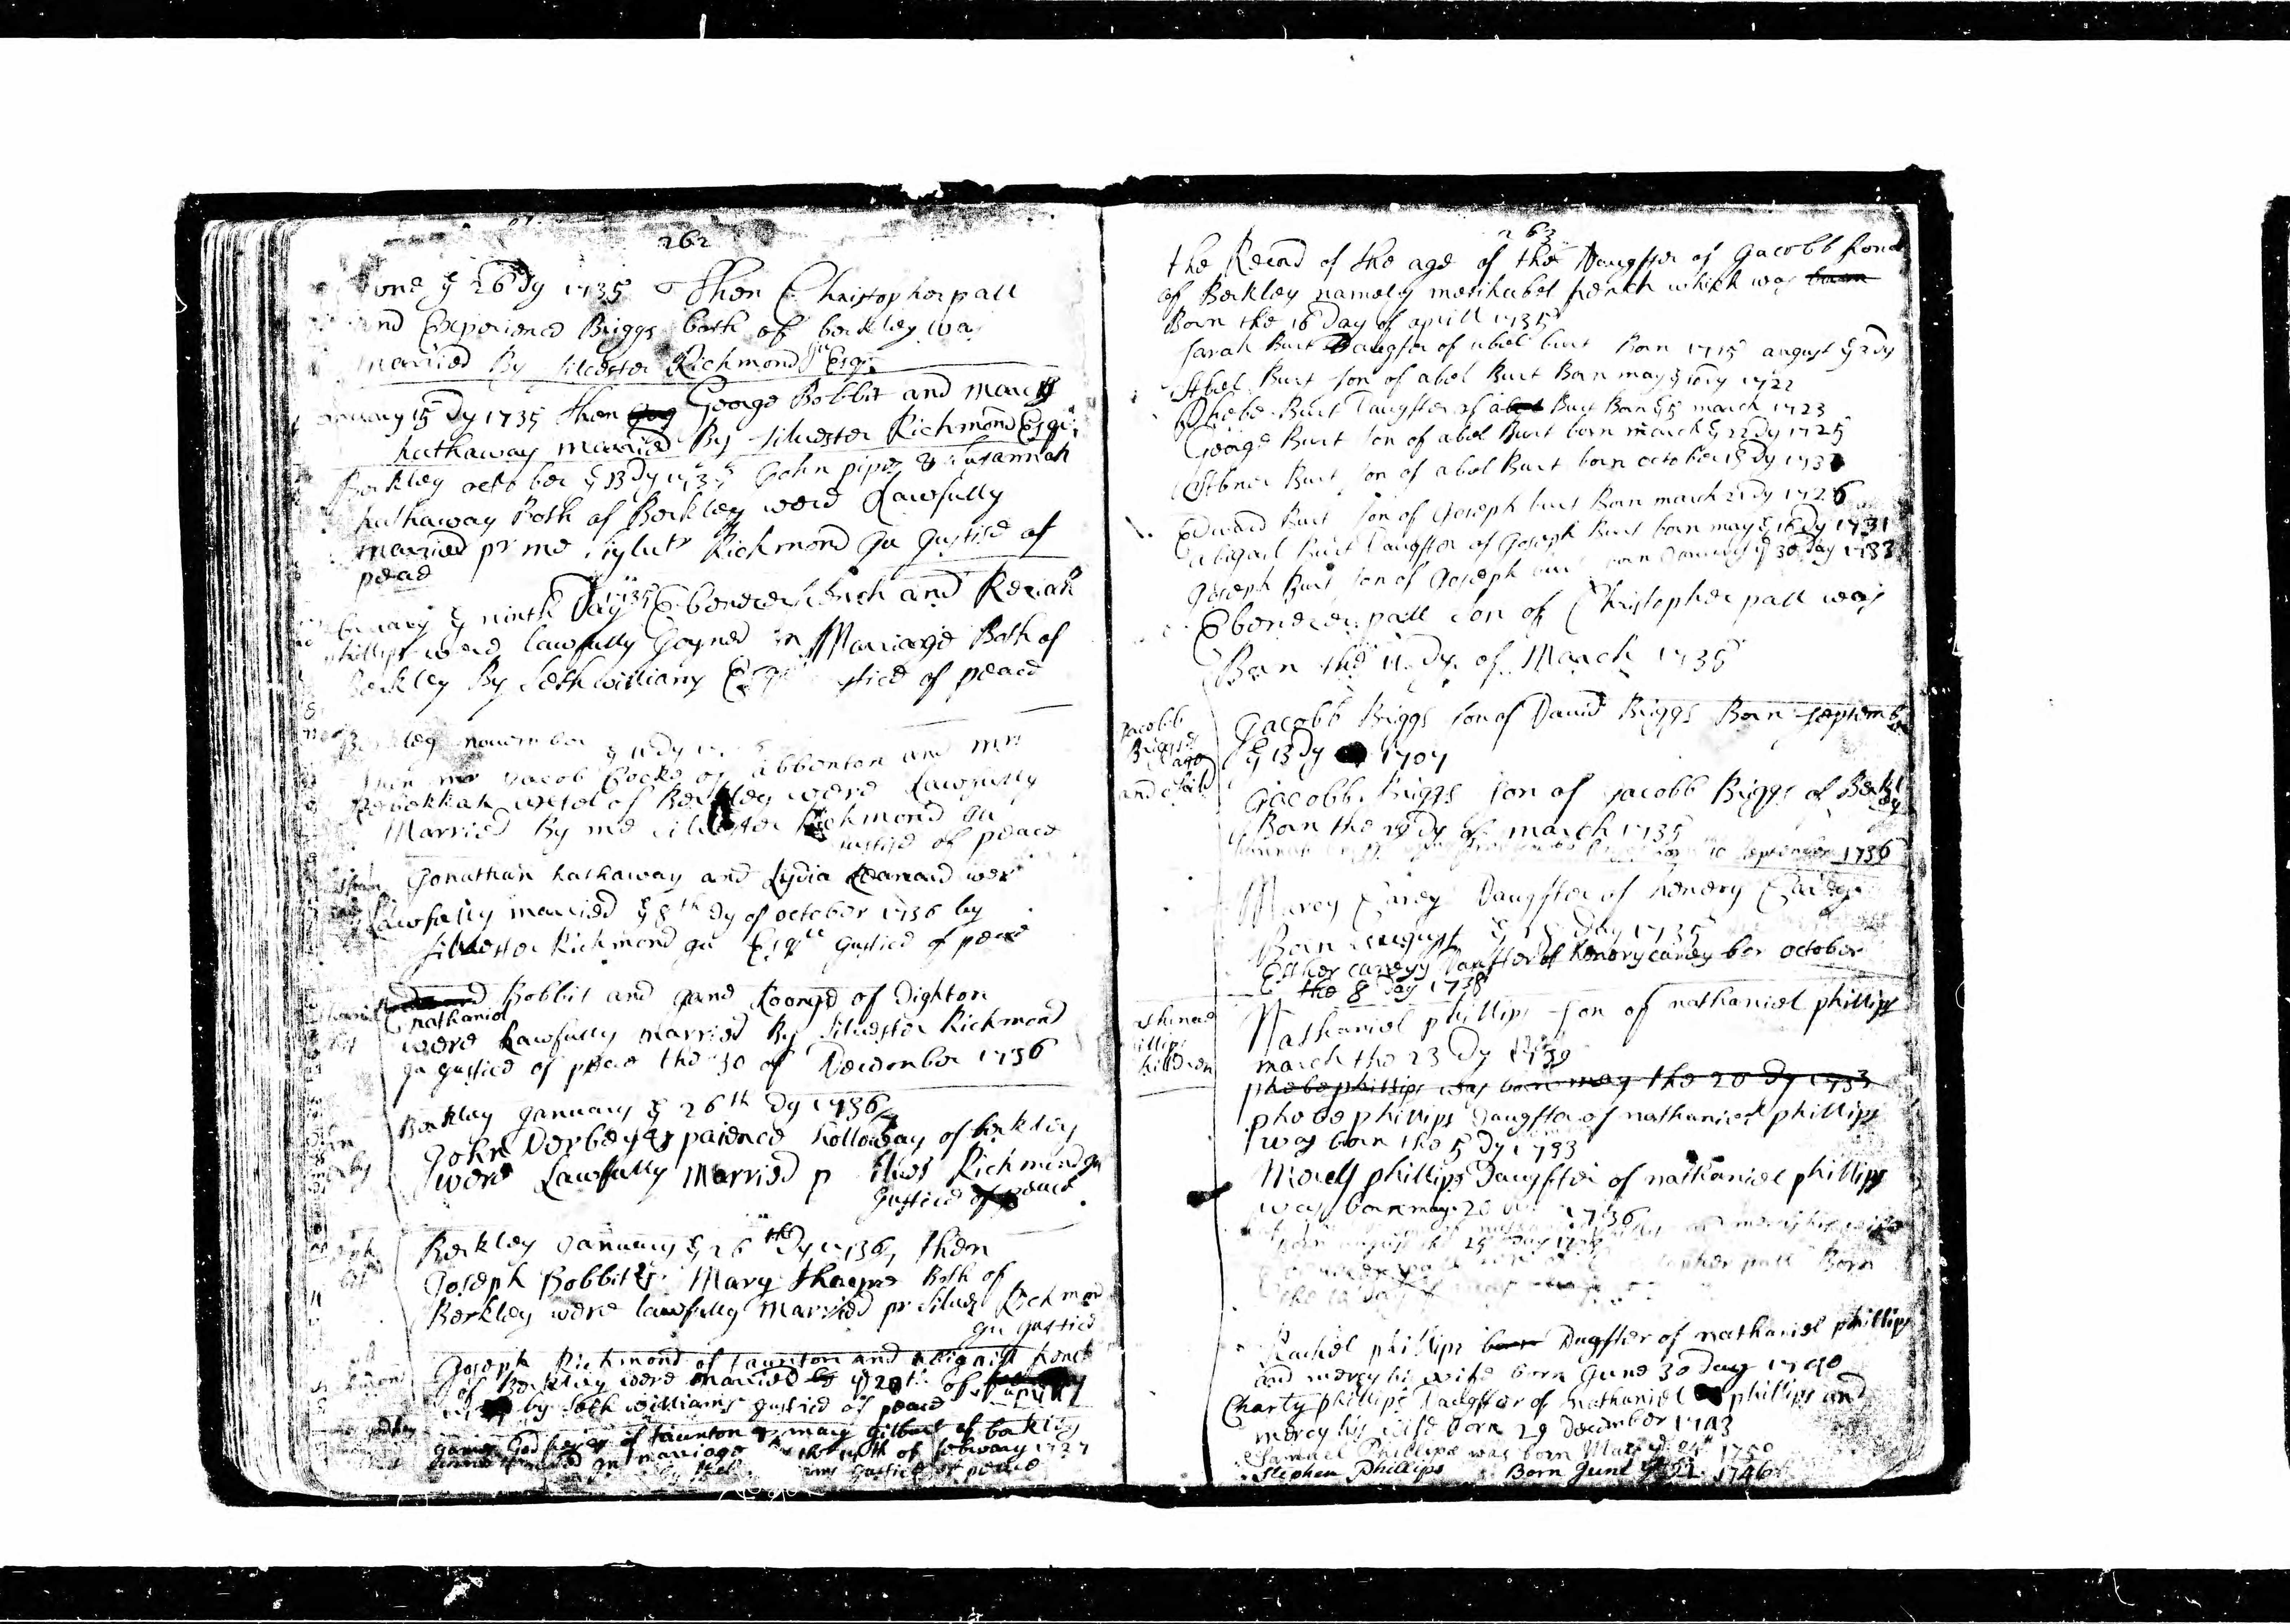 262
one ye 26 Dy 1735 Then Christopher pall
and Experienc Briggs both of berkley wa
married By Silvester Richmond Jur Esqr
15 Dy 1735 then George Bobbit and marcy
hathaway married By Silvester Richmond Esqr
Berkley october ye 13 Dy 1735 John pipe & Susannah
hathaway Both of Berkley were Lawfully
married pr me Richmond Ju Justise of
peace
ye ninth Day 1735 Ebenezer french and Keziah
phillips were lawfully Joyned in Marriage Both of
Berkley By Seth williams Esqr Justice of peace
november ye
then mr Jacob of abbenton and mrs
Rebekkah of Berkley were Lawfully
Married By me Silvester Richmond Ju
Justice of peace
Jonathan hathaway and Lydia Leanard wer
Lawfully married ye 8th Dy of october 1736 by
Silvester Richmond Ju Esqr Justice of peace
Bobbit and Jane of Dighton
nathaniel
were Lawfully married By Silvester Richmond
Ju Justice of peace the 30 of Decembr 1736
Berkley January ye 26th Dy 1736
John Dorbey & Expaience holloway of berkley
were Lawfully Married p Silves Richmond Ju
Justice of peace
Berkley January ye 26 th Dy 1736, then
Joseph Bobbit & Mary Both of
Berkley were lawfully married pr Silves Richmon
Ju Justice
Joseph Richmond of taunton and Abigaill french
of Berkley were married ye 20th of April
by Seth Williams Justice of peace
James Godfrey of taunton & mary Gilbert of berkley
in marriage the of february
Justice of peace
263
the Record of the age of the Daughter of Jacobb french
of Berkley namely mehitabel french which was born
Born the 16 Day of aprill 1735
Sarah Burt Daughter of abel burt Born 1715 august ye 2 dy
Abel Burt Son of abel Burt Born may ye 10 dy 1722
Phebe Burt Daughter of abel Burt Born ye 5 march 1723
George Burt Son of abel Burt born march ye 22 Dy 1725
Abner Burt Son of abel Burt born october 13 Dy
Edward Burt Son of Joseph burt Born march 21 Dy 1726
Abigail Burt Daughter of Joseph Burt born may ye 16 Dy 1731
Joseph Burt Son of Joseph burt born January ye 30 Day 1733
Ebenezer pall Son of Christopher pall was
Born the 11 Dy of March 1735
Jacobb
Briggs
age
and child
Jacobb Briggs Son of David Briggs Born Septembr
ye 13 Dy 1707
Jacobb Briggs Son of Jacobb Briggs of Berkley
Born the 29 Dy of march 1735
September 1736
Marcy Carey Daughter of henery Carey
Born August ye 18 Day 1735
Esther carey Daughter of henery carey bor october
the 8 Day 1738
phillips
children
Nathaniel phillips Son of nathaniel phillips
march the 23 Dy
phebe phillips was born may the 20 Dy 1733
phebe phillips Daughter of nathaniel phillips
was born the 5 Dy 1733
Mercy phillips Daughter of nathaniel phillips
was born may 20 1736
born august the 25 Day
pall Born
Rachel phillips born Daughter of nathaniel phillips
and mercy his wife born June 30 Day 1740
Charty phillips Daughter of Nathaniel phillips and
mercy his wife born 29 December 1743
Samuel Phillips was born 1750
Stephen Phillips Born June ye 1746